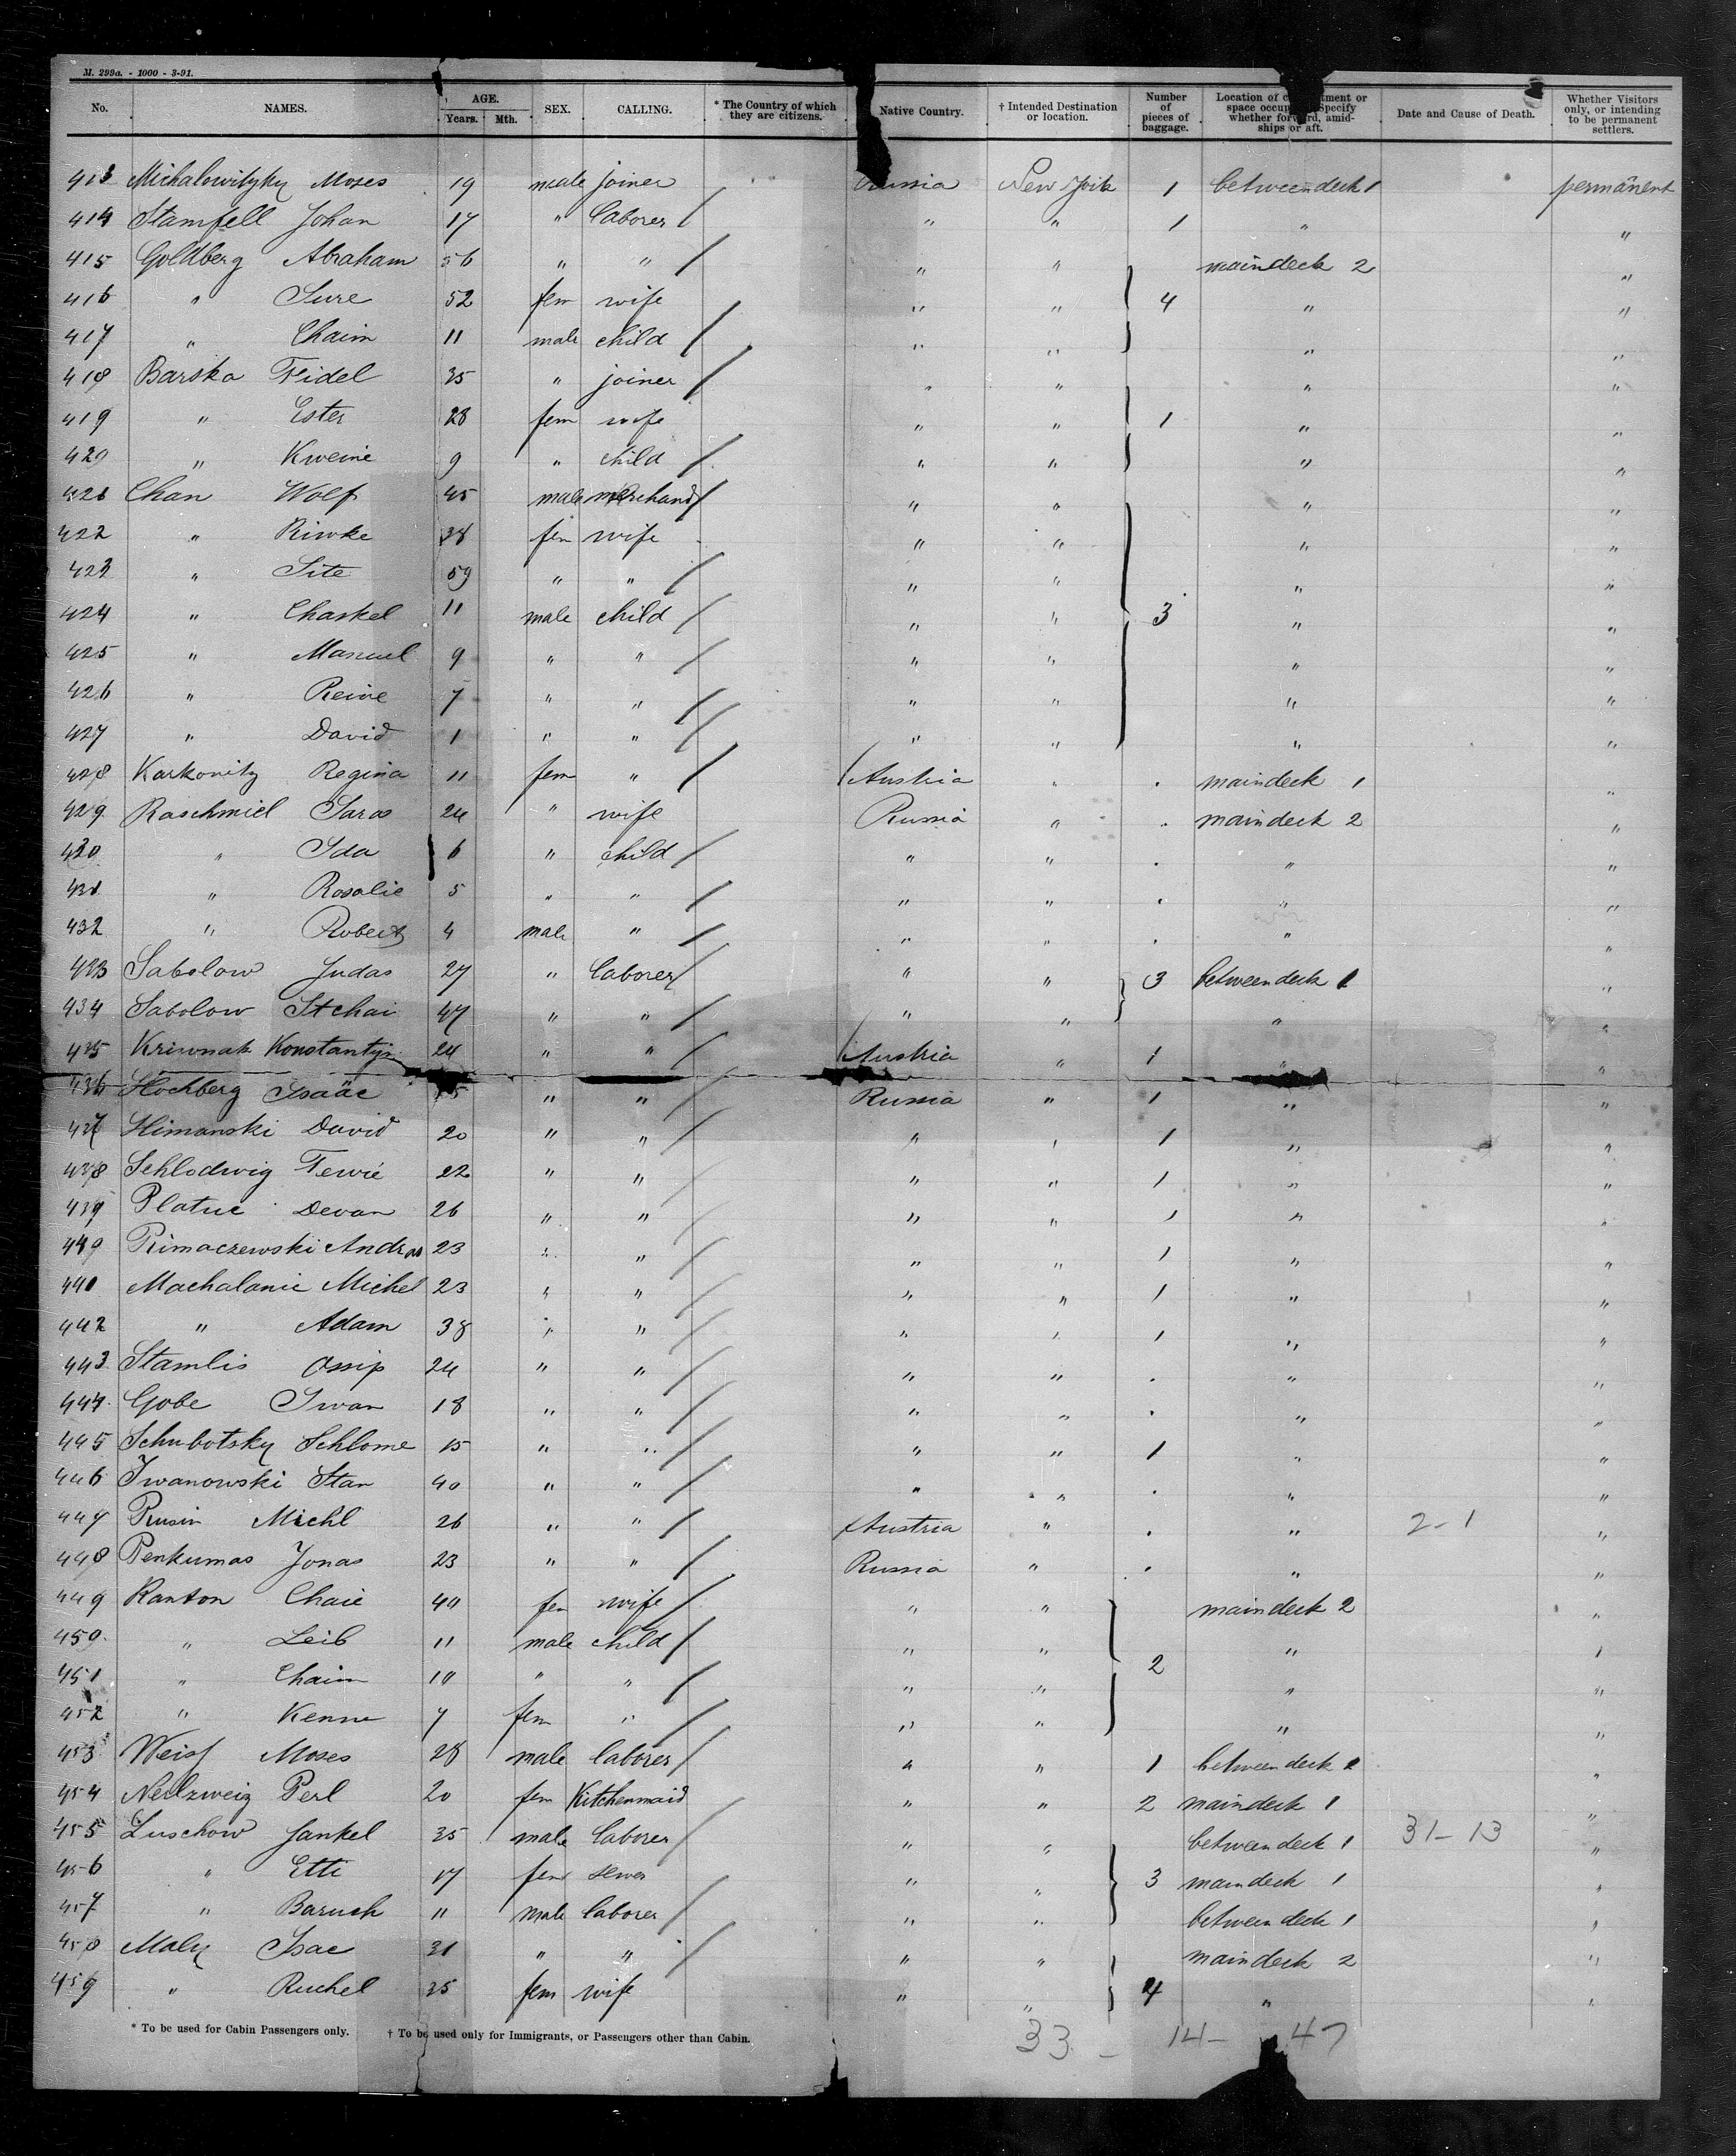 M. 299a. - 1000 - 3-91.
No. NAMES. AGE. Years. Mth. SEX. CALLING. * The Country of which they are citizens. Native Country. † Intended Destination or location. Number of pieces of baggage. Location of compartment or space occupied. Specify whether forward, amidships or aft. Date and Cause of Death. Whether Visitors only, or intending to be permanent settlers.
413 Michalowitzky Moses 19 male joiner Russia New York 1 betweendeck 1 permanent
414 Stamfell Johan 17 " laborer " " 1 " "
415 Goldberg Abraham 56 " " " " maindeck 2 "
416 " Sure 52 fem wife " " 4 " "
417 " Chaim 11 male child " " " "
418 Barska Fidel 35 " joiner " " " "
419 " Ester 28 fem wife " " 1 " "
420 " Kweine 9 " child " " " "
421 Chan Wolf 45 male merchand " " " "
422 " Riwke 38 fem wife " " " "
423 " Site 59 " " " " " "
424 " Chaskel 11 male child " " 3 " "
425 " Manuel 9 " " " " " "
426 " Reine 7 " " " " " "
427 " David 1 " " " " " "
428 Karkovitz Regina 11 fem " Austria " maindeck 1 "
429 Raschmiel Saras 24 " wife Russia " maindeck 2 "
430 " Ida 6 " child " " " "
431 " Rosalie 5 " " " " " "
432 " Robert 4 male " " " " "
433 Sabolow Judas 27 " laborer " " 3 betweendeck 1 "
434 Sabolow Stchai 47 " " " " " "
435 Kriwnak Konstantyn 24 " " Austria " 1 " "
436 Hochberg Isaäc " " Russia " 1 " "
437 Himanski David 20 " " " " 1 " "
438 Schlodwig Tewie 22 " " " " 1 " "
439 Platuc Devan 26 " " " " 1 " "
440 Rimaczewski Andras 23 " " " " 1 " "
441 Machalanie Michel 23 " " " " 1 " "
442 " Adam 38 " " " " 1 " "
443 Stamlis Ossip 24 " " " " " "
444 Gobe Iwan 18 " " " " " "
445 Schubotsky Schlome 15 " " " " 1 " "
446 Iwanowski Stan 40 " " " " " "
447 Rusin Michl 26 " " Austria " " 2-1 "
448 Penkumas Jonas 23 " " Russia " " "
449 Kanton Chaie 40 fem wife " " maindeck 2 "
450 " Leib 11 male child " " " "
451 " Chaim 10 " " " " 2 " "
452 " Kenne 7 fem " " " " "
453 Weisf Moses 28 male laborer " " 1 betweendeck 1 "
454 Neilzweig Perl 20 fem Kitchenmaid " " 2 maindeck 1 "
455 Luschow Jankel 35 male laborer " " betweendeck 1 31-13 "
456 " Etti 17 fem sewer " " 3 maindeck 1 "
457 " Baruch 11 male laborer " " betweendeck 1 "
458 Maly Isac 31 " " " " maindeck 2 "
459 " Ruchel 35 fem wife " " 4 " "
* To be used for Cabin Passengers only. † To be used only for Immigrants, or Passengers other than Cabin.
33 - 14 - 47